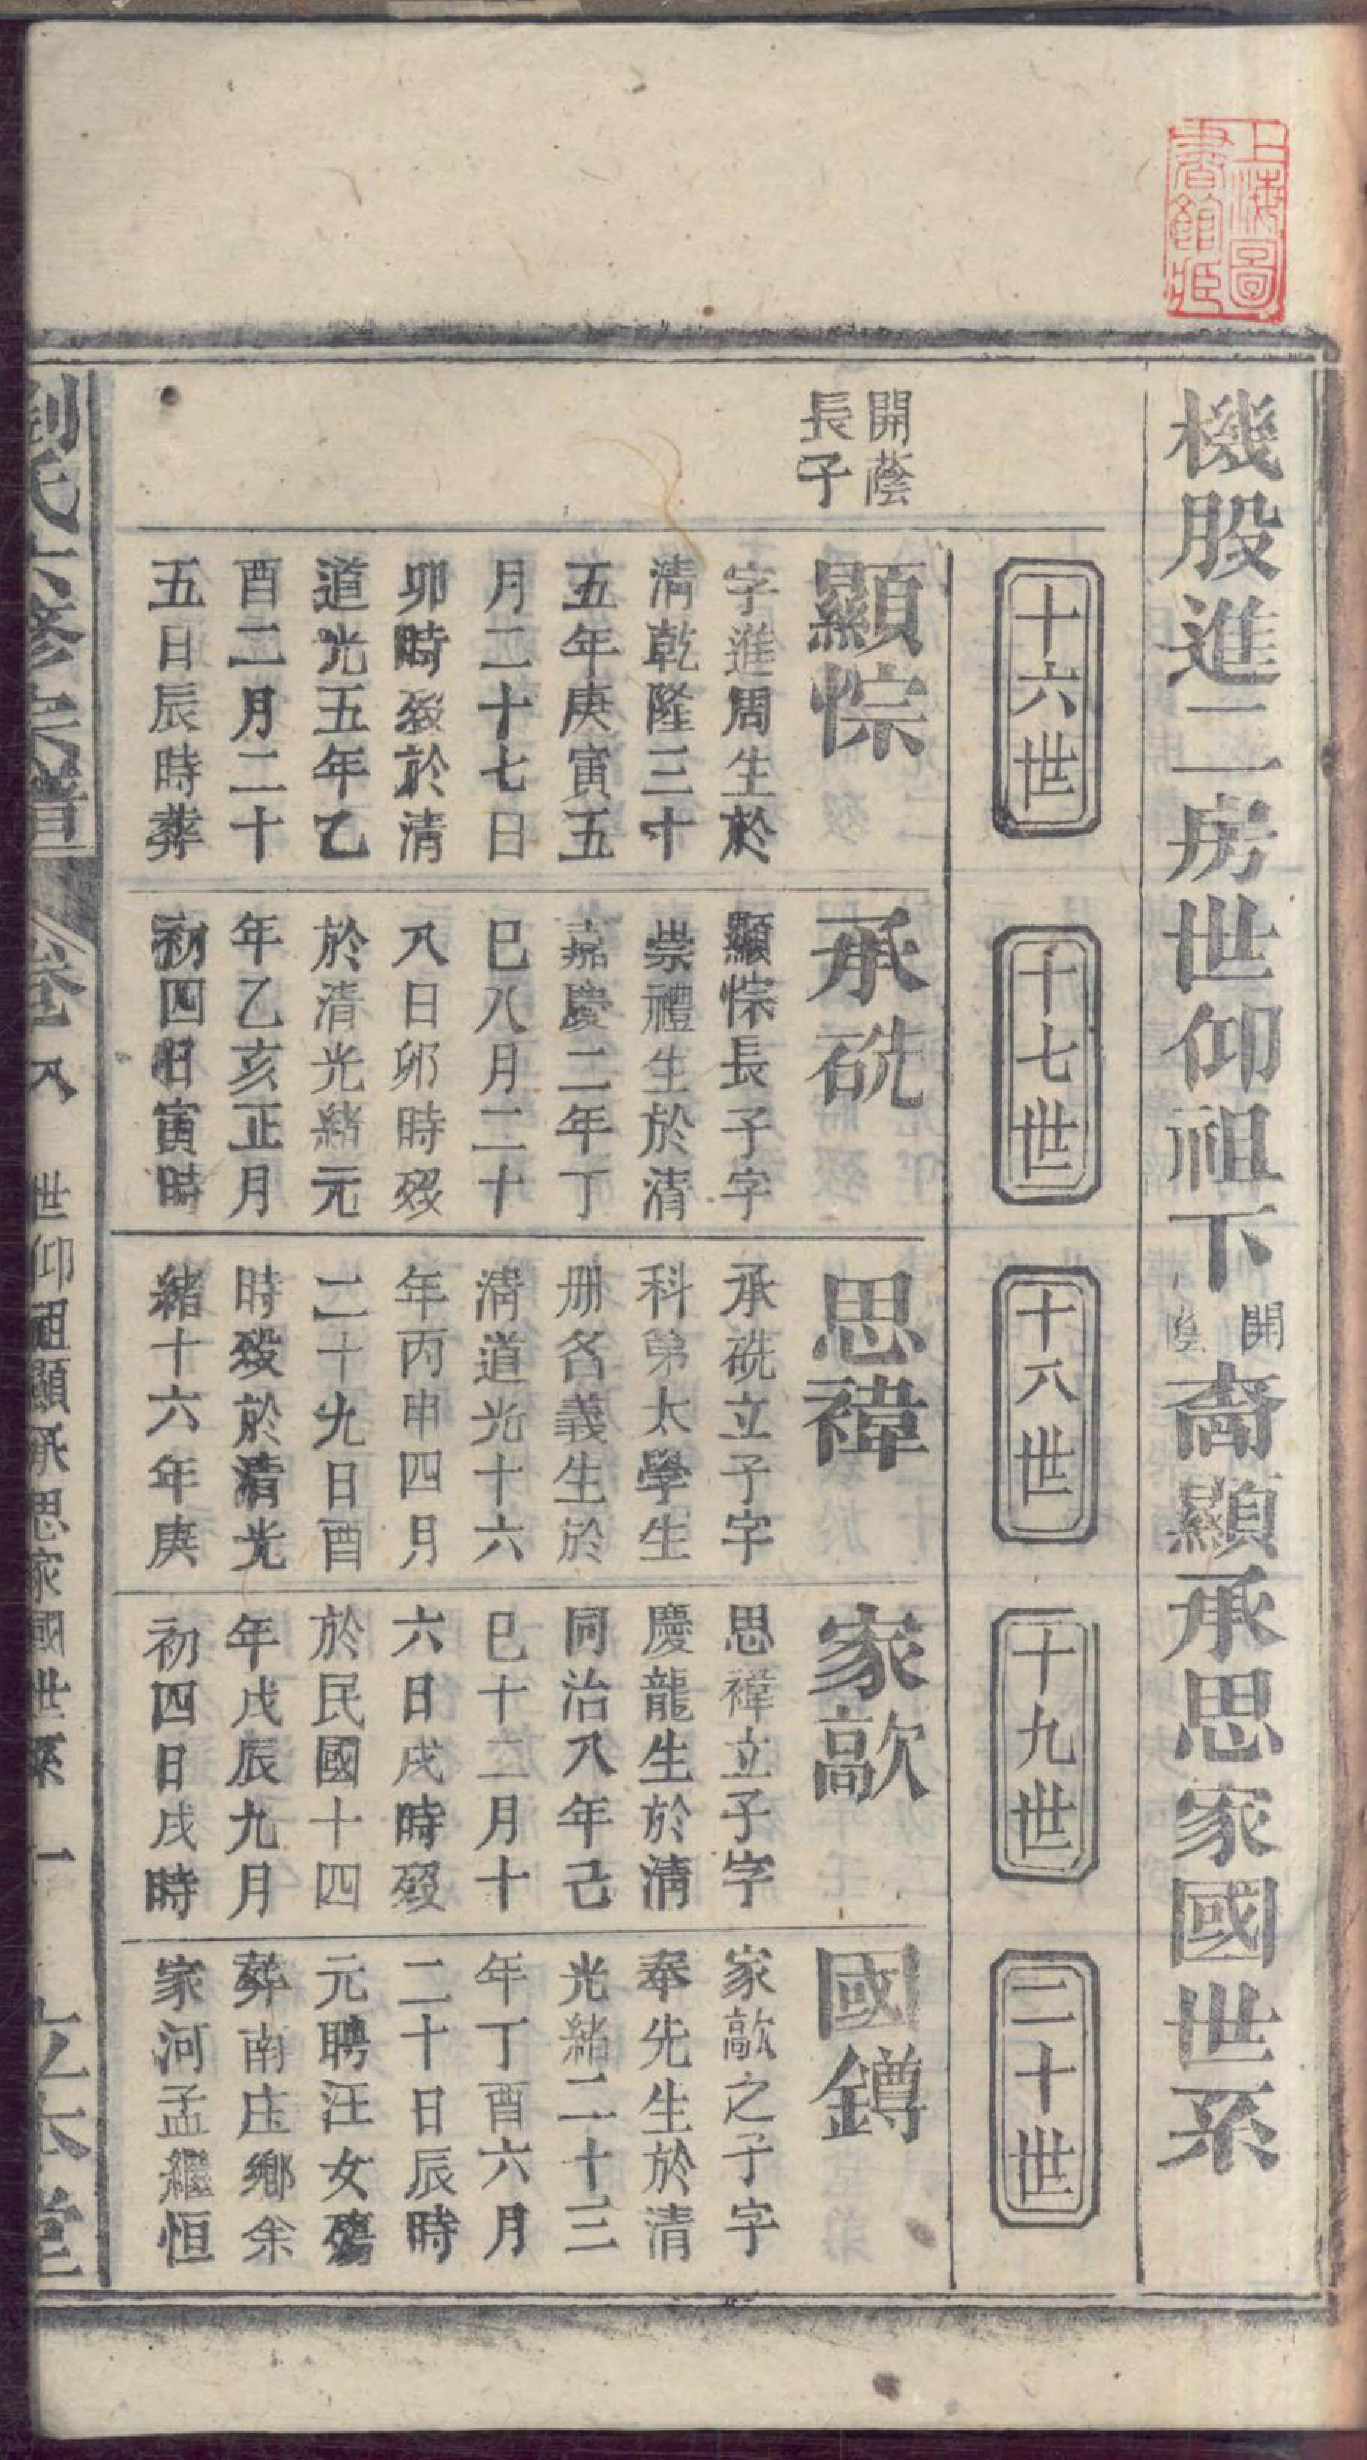 上海圖
書館藏
機股進二房世仰祖下開蔭裔顯承思家國世系
十六世
十七世
十八世
十九世
二十世
開蔭
長子
顯悰
字進周生於
清乾隆三十
五年庚寅五
月二十七日
卯時歿於清
道光五年乙
酉二月二十
五日辰時葬
承硄
顯悰長子字
崇禮生於清
嘉慶二年丁
巳八月二十
八日卯時歿
於清光緒元
年乙亥正月
初四日寅時
思褘
承硄立子字
科第太學生
册名義生於
清道光十六
年丙申四月
二十九日酉
時歿於清光
緒十六年庚
家歊
思褘立子字
慶龍生於清
同治八年己
巳十二月十
六日戌時歿
於民國十四
年戊辰九月
初四日戌時
國鐏
家歊之子字
奉先生於清
光緒二十三
年丁酉六月
二十日辰時
元聘汪女殤
葬南庄鄉余
家河孟繼恒
劉氏六修宗譜
卷八
世仰祖顯承思家國世系
一
立本堂